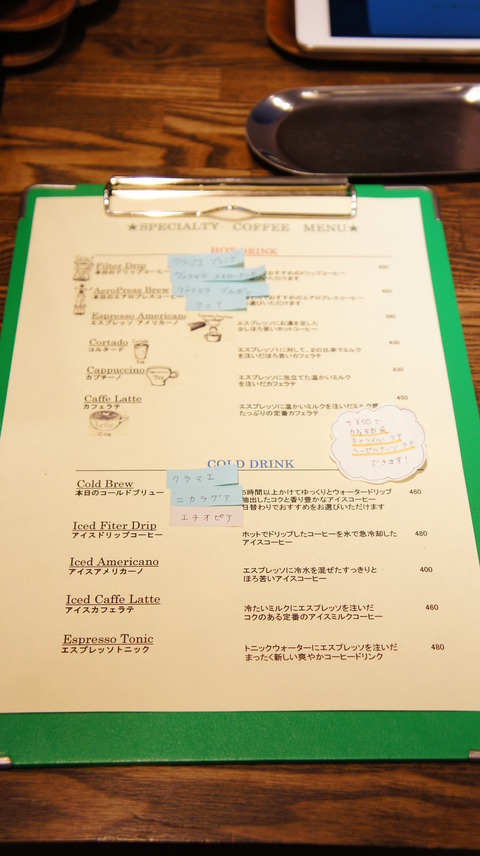 ★SPECIALTY COFFEE MENU★
HOT DRINK
Filter Drip
本日のドリップコーヒー
AeroPress Brew
本日のエアロプレスコーヒー
Espresso Americano
エスプレッソ アメリカーノ
エスプレッソにお湯を足した
少しほろ苦いホットコーヒー
380
Cortado
コルタード
エスプレッソ1に対して、2の比率でミルク
を注いだほろ苦いカフェラテ
430
Cappuccino
カプチーノ
エスプレッソに泡立てた温かいミルク
を注いだカフェラテ
430
Caffe Latte
カフェラテ
エスプレッソに温かいミルクを注いだミルク感
たっぷりの定番カフェラテ
450
できます!
COLD DRINK
Cold Brew
本日のコールドブリュー
クラマエ
ニカラグア
エチオピア
5時間以上かけてゆっくりとウォータードリップ
抽出したコクと香り豊かなアイスコーヒー
日替わりでおすすめをお選びいただけます
460
Iced Fiter Drip
アイスドリップコーヒー
ホットでドリップしたコーヒーを氷で急冷却した
アイスコーヒー
480
Iced Americano
アイスアメリカーノ
エスプレッソに冷水を混ぜたすっきりと
ほろ苦いアイスコーヒー
400
Iced Caffe Latte
アイスカフェラテ
冷たいミルクにエスプレッソを注いだ
コクのある定番のアイスミルクコーヒー
460
Espresso Tonic
エスプレッソトニック
トニックウォーターにエスプレッソを注いだ
まったく新しい爽やかコーヒードリンク
480